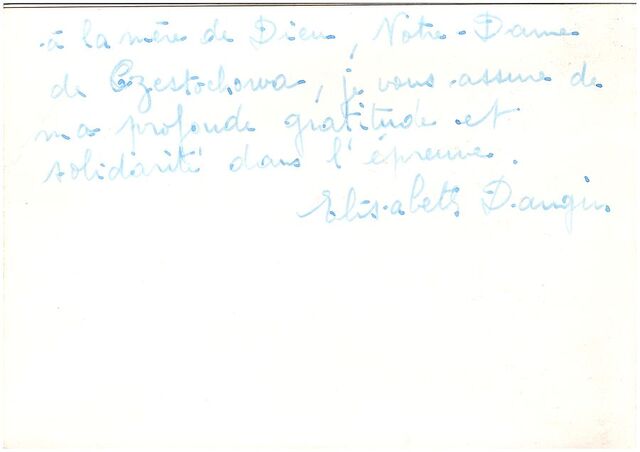 à la mère de Dieu, Notre-Dame
de Czestochowa, je vous assure de
ma profonde gratitude et
solidarité dans l'épreuve.
Elisabeth Dangin